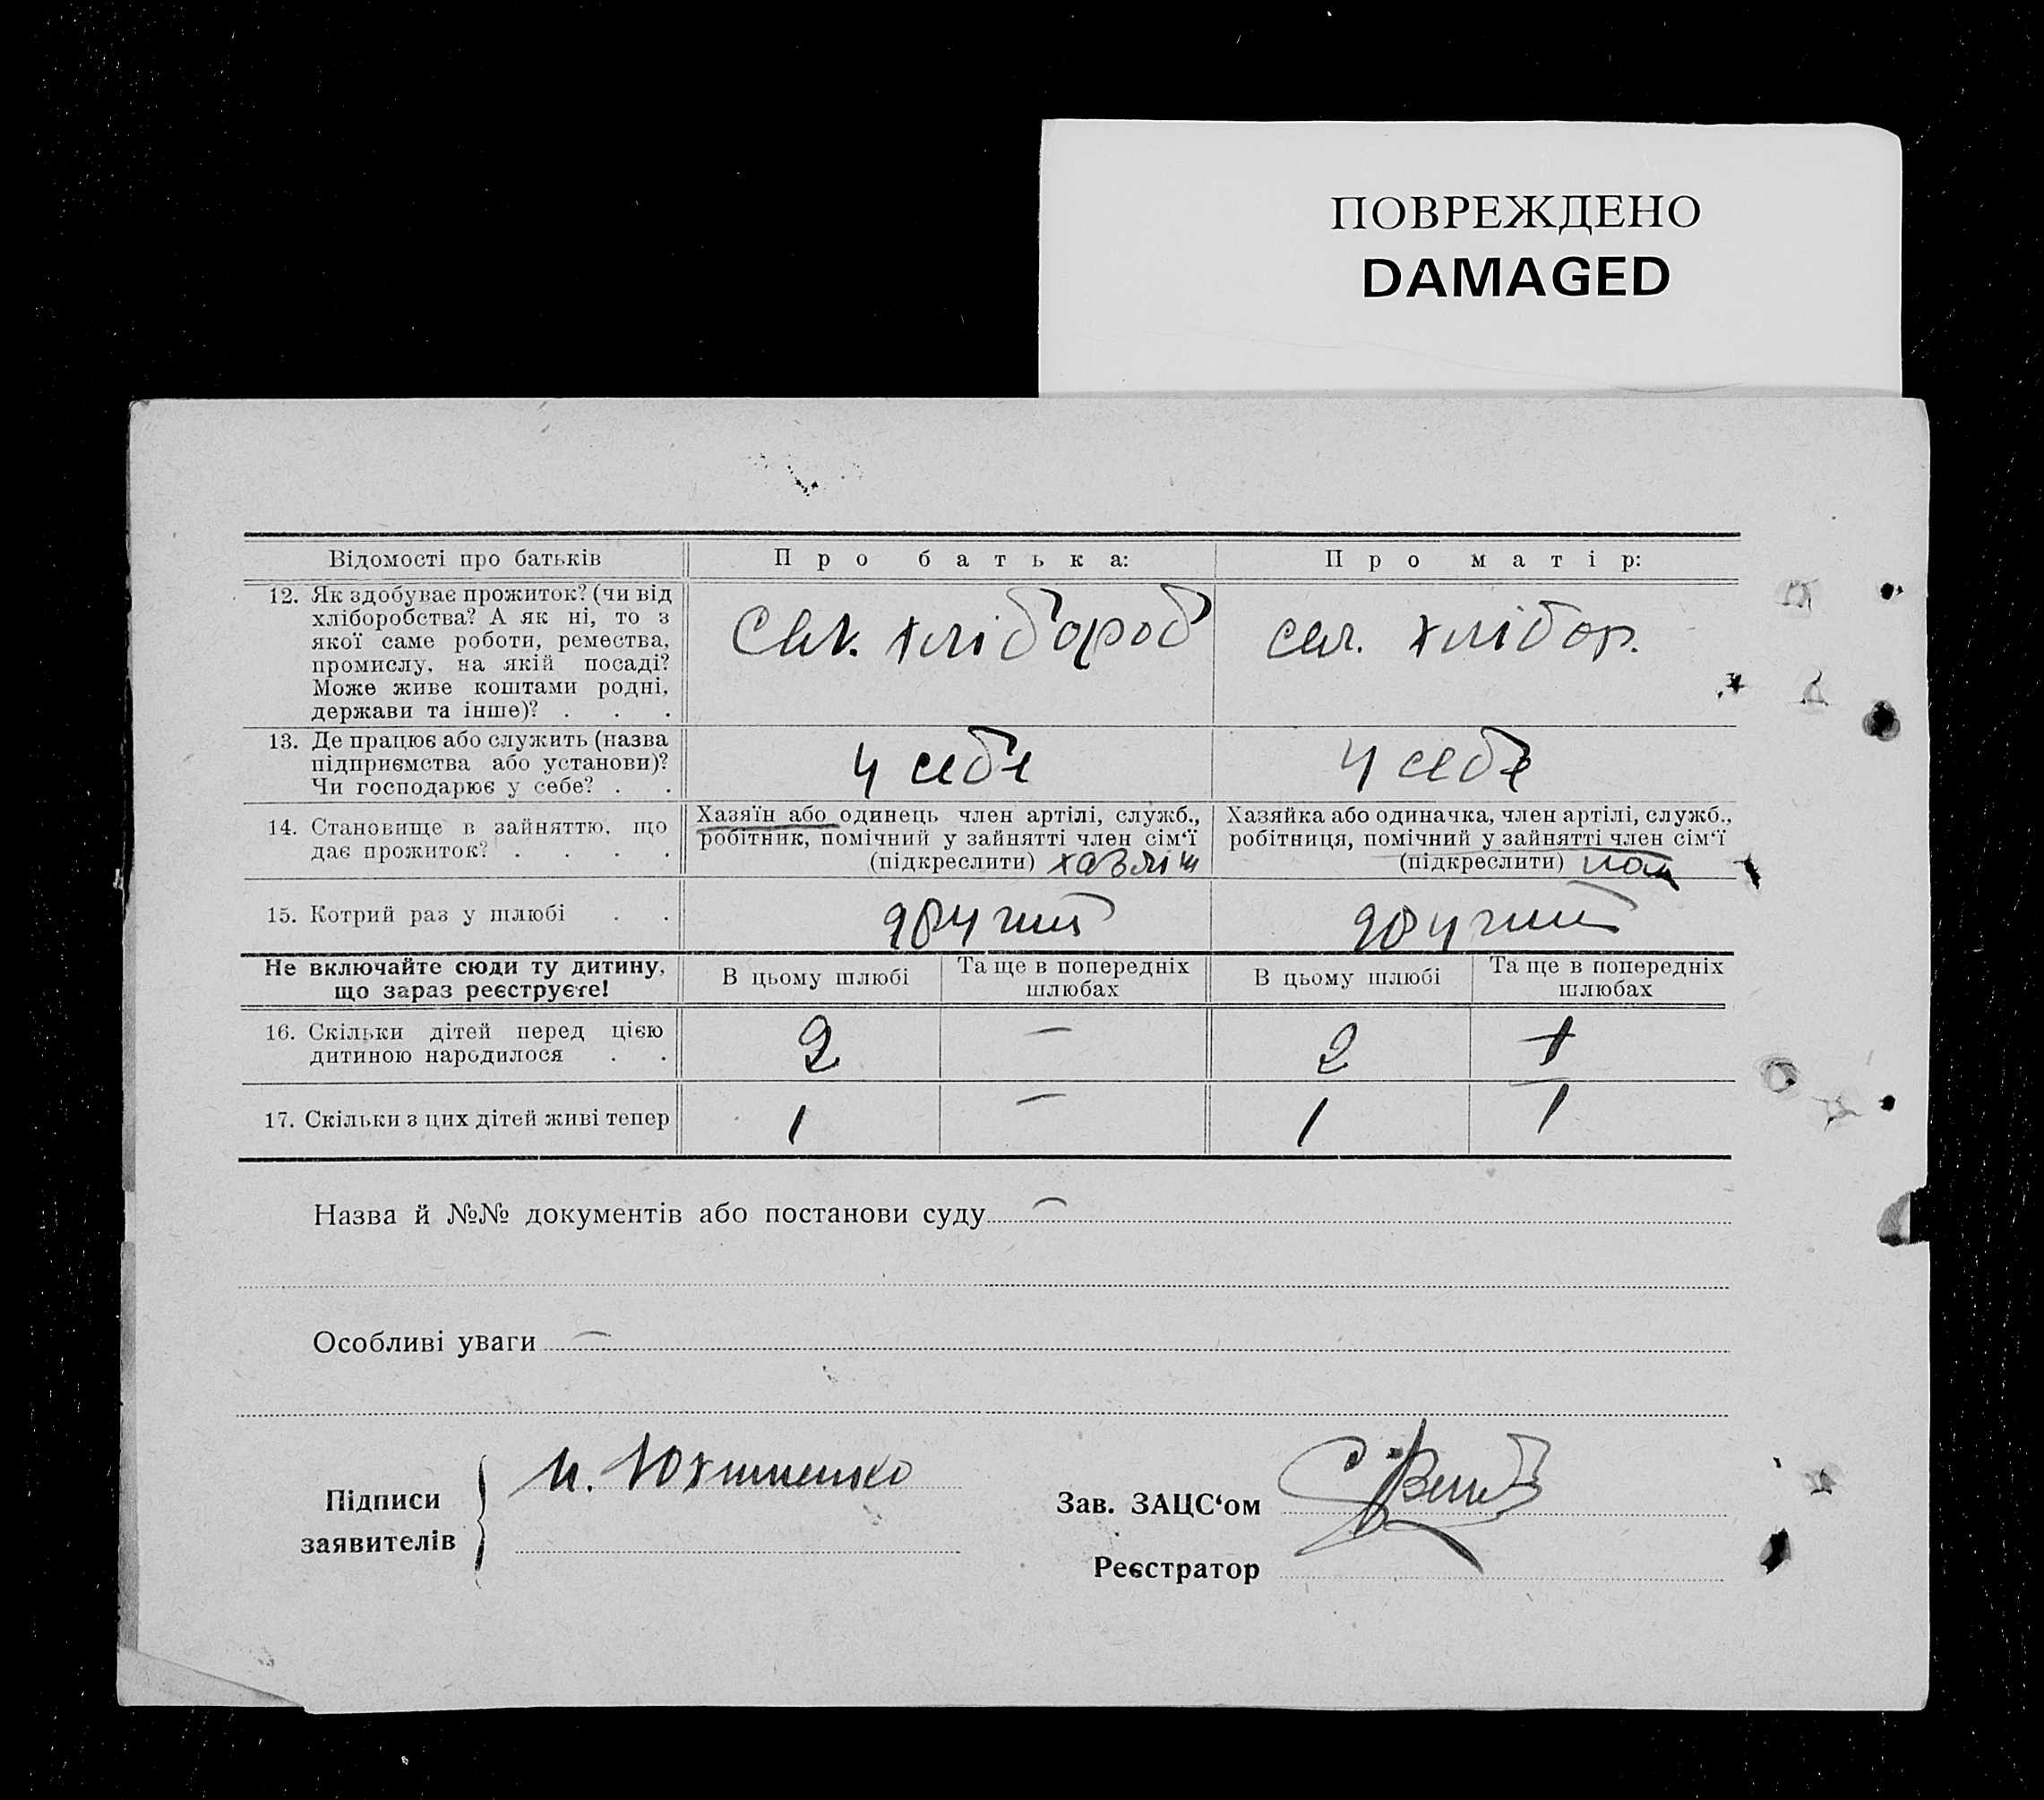 ПОВРЕЖДЕНО
DAMAGED
Відомості про батьків
Про батька:
Про матір:
12. Як здобуває прожиток? (чи від
хліборобства? А як ні, то з
якої саме роботи, ремества,
промислу, на якій посаді?
Може живе коштами родні,
держави та інше)? . . .
Сел. хлібороб
сел. хлібор.
13. Де працює або служить (назва
підприємства або установи)?
Чи господарює у себе? . .
у себе
у себе
14. Становище в зайняттю, що
дає прожиток? . . . .
Хазяїн або одинець член артілі, служб.,
робітник, помічний у зайнятті член сім‘ї
(підкреслити) хазяїн
Хазяйка або одиначка, член артілі, служб.,
робітниця, помічний у зайнятті член сім‘ї
(підкреслити) пом
15. Котрий раз у шлюбі . .
другий
другий
Не включайте сюди ту дитину,
що зараз реєструєте!
В цьому шлюбі
Та ще в попередніх
шлюбах
В цьому шлюбі
Та ще в попередніх
шлюбах
16. Скільки дітей перед цією
дитиною народилося . .
2
—
2
1
17. Скільки з цих дітей живі тепер
1
—
1
1
Назва й №№ документів або постанови суду —
Особливі уваги —
Підписи
заявителів
Зав. ЗАЦС‘ом
Реєстратор